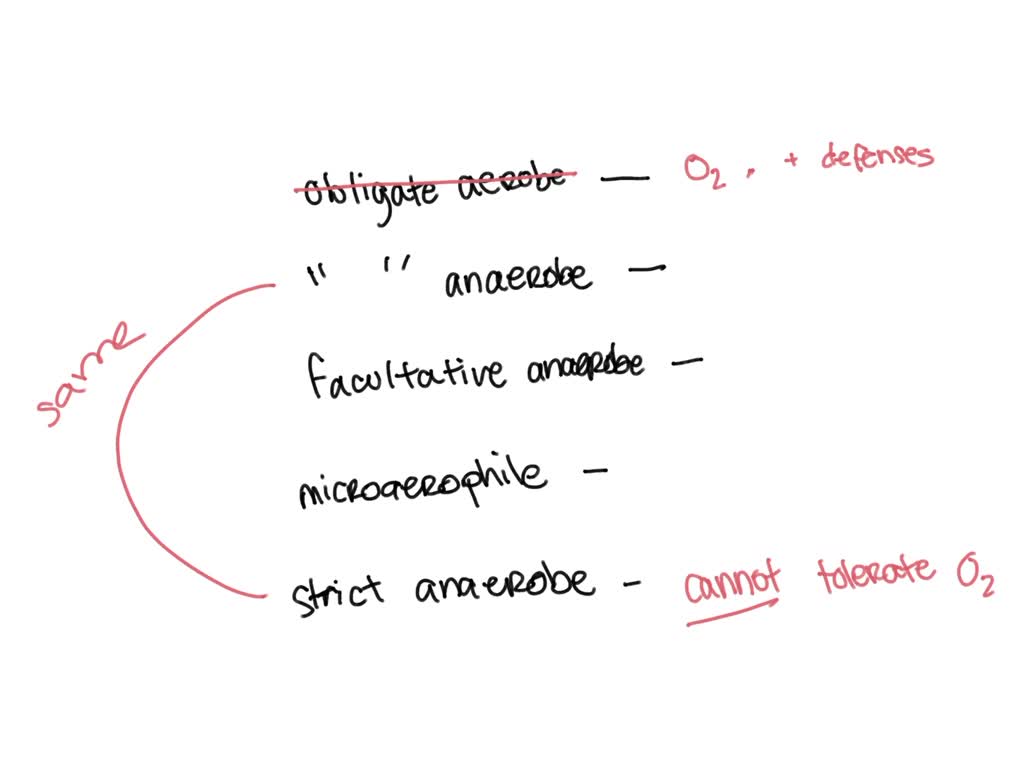 obligate aerobe — O₂ . + defenses
" " anaerobe —
same
facultative anaerobe —
microaerophile —
strict anaerobe - cannot tolerate O₂